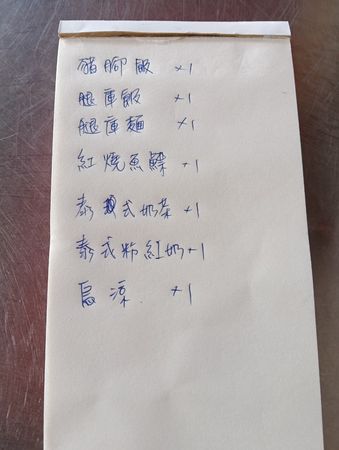 豬腳飯 ×1
腿庫飯 ×1
腿庫麵 ×1
紅燒魚 +1
泰式奶茶 +1
泰式粉紅奶+1
烏深 +1